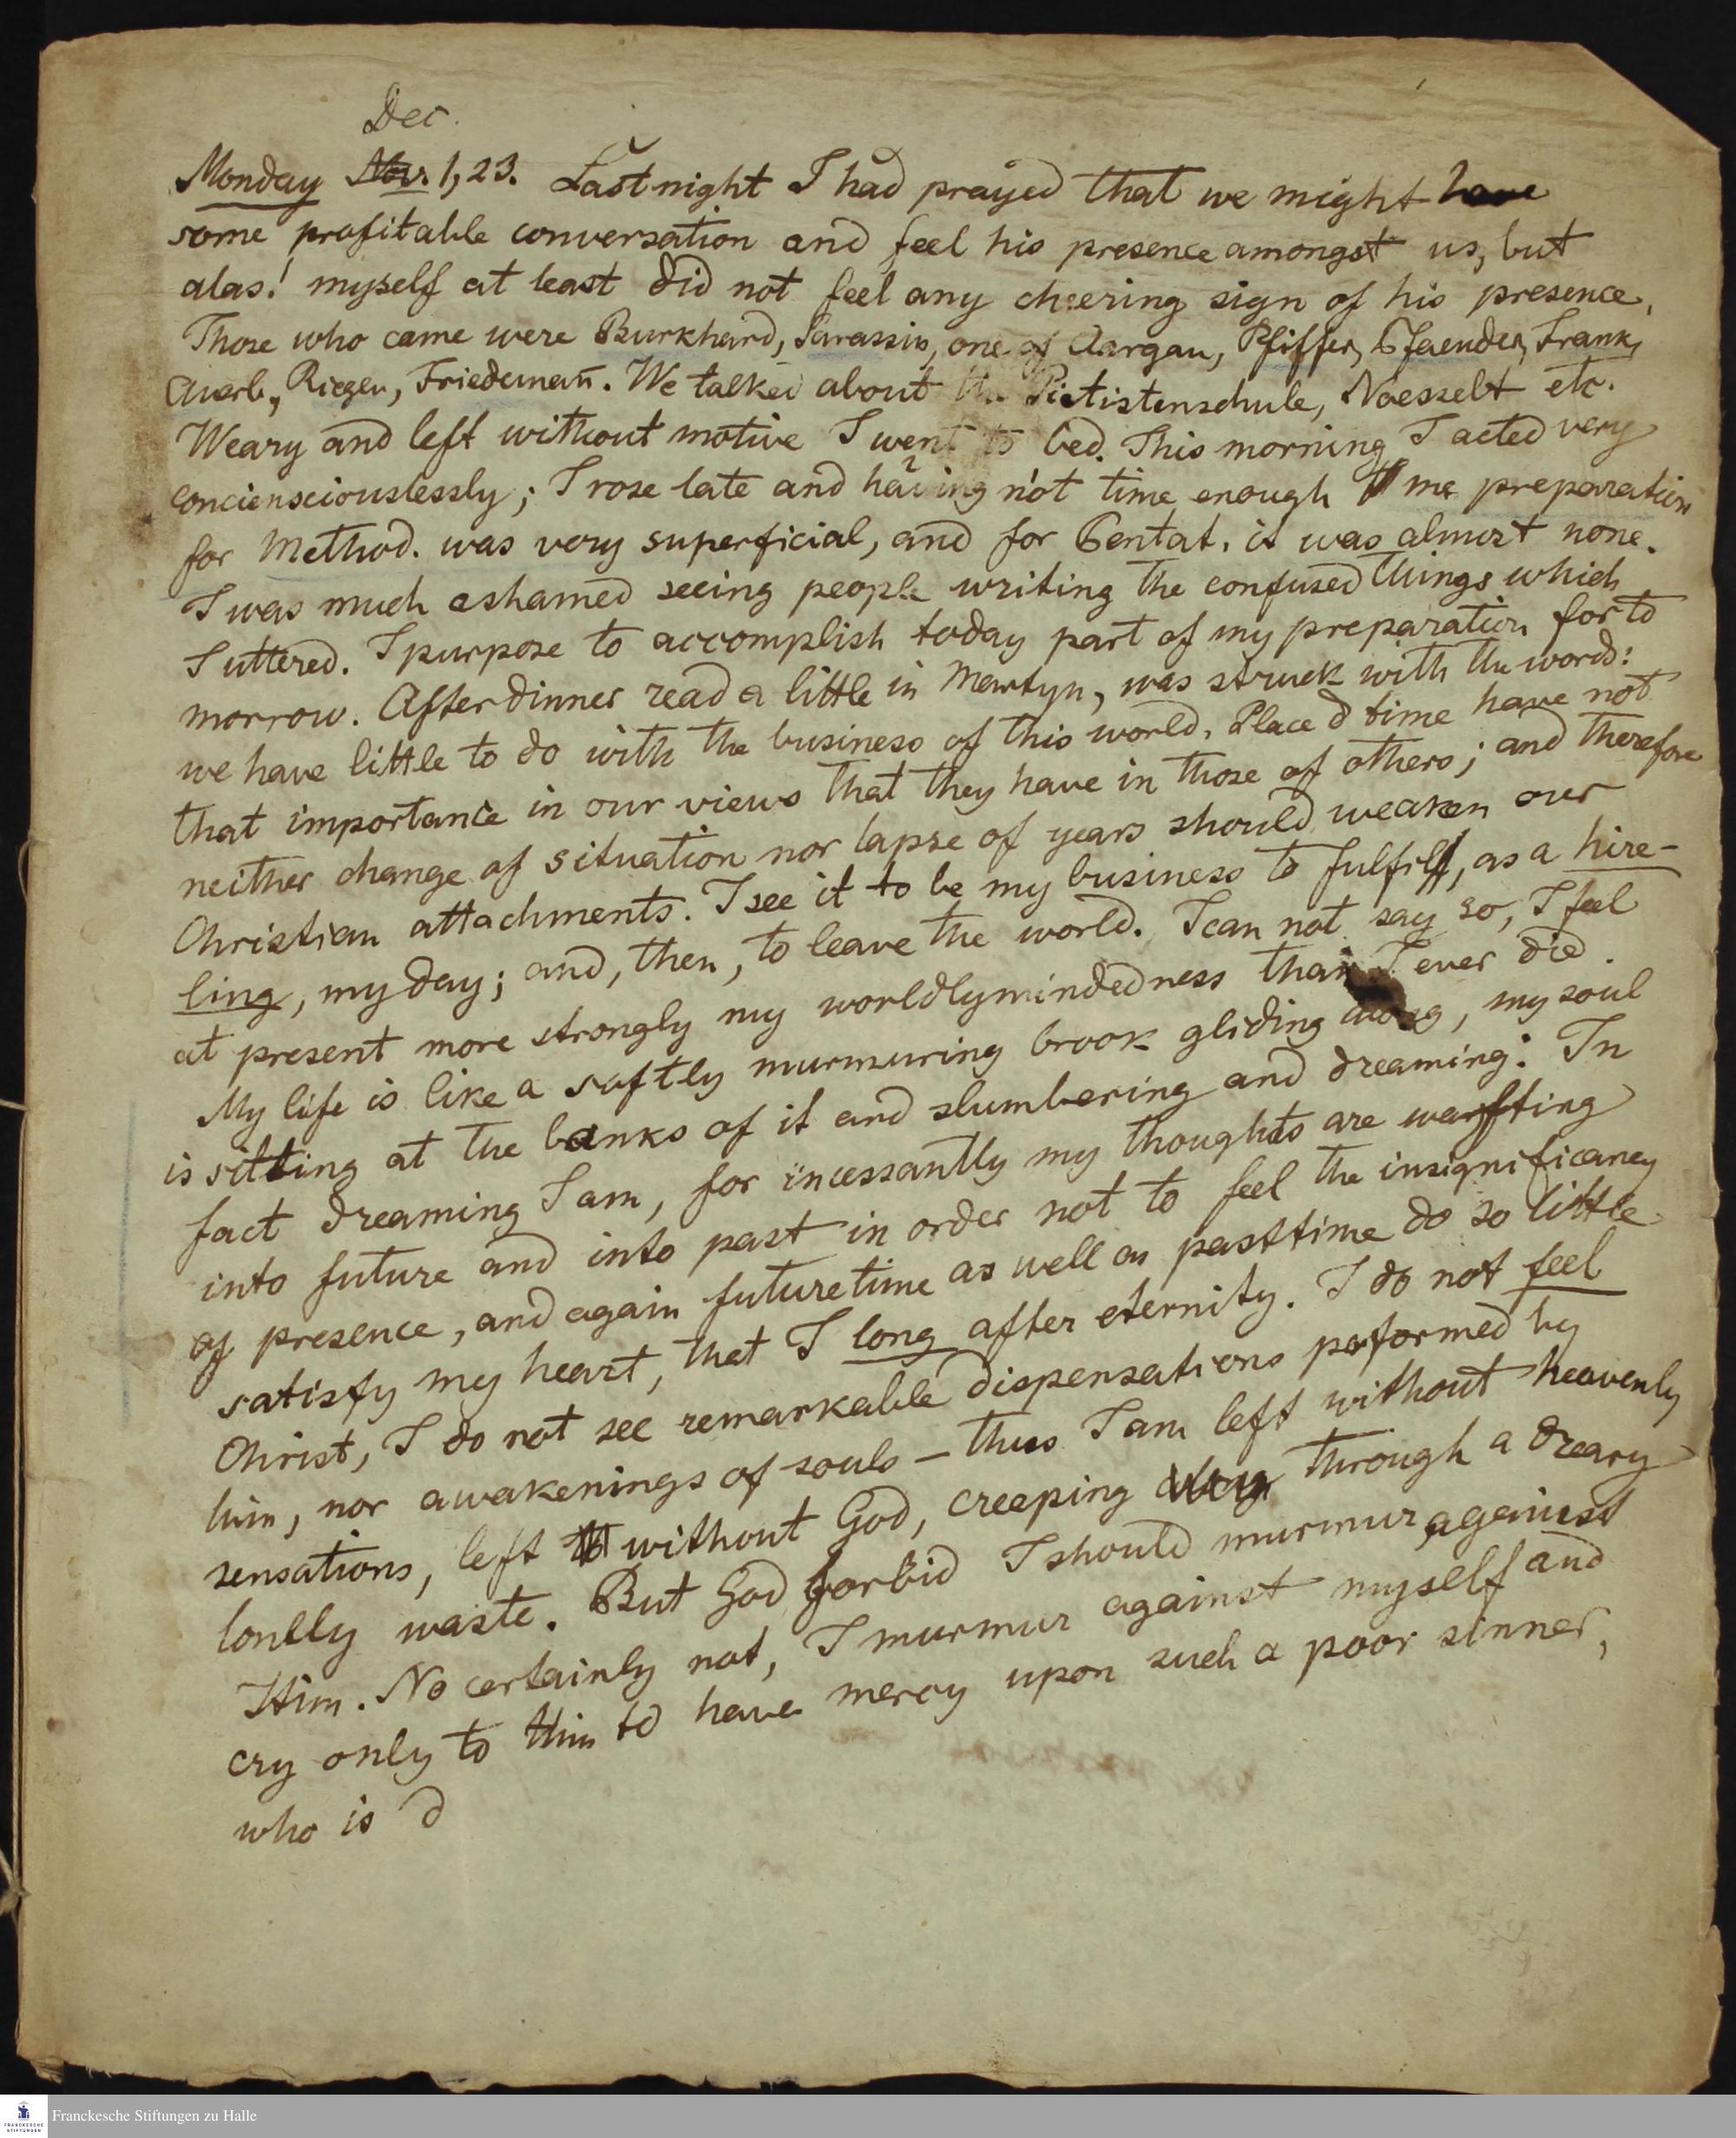 Dec.
Monday Nov. 1, 23. Last night I had prayed that we might have
some profitable conversation and feel his presence amongst us, but
alas! myself at least did not feel any cheering sign of his presence,
Those who came were Burkhard, Sarassin, one of Aargau, Pfiffer, Pfaender, Frank,
Rieger, Friedeman̄. We talked about the Pietistenschule, Noesselt etc.
Weary and left without motive I went to bed. This morning I acted very
conciensciouslessly; I rose late and having not time enough me preparation
for Method. was very superficial, and for Pentat. it was almost none.
I was much ashamed seeing people writing the confused things which
I uttered. I purpose to accomplish today part of my preparation for to
morrow. After dinner read a little in Martyn, was struck with the words:
we have little to do with the business of this world. Place d time have not
that importance in our views that they have in those of others; and therefore
neither change of situation nor lapse of years should weaken our
Christian attachments. I see it to be my business to fulfill, as a hire-
ling, my day; and, then, to leave the world. I can not say so, I feel
at present more strongly my worldlymindedness than I ever did.
My life is like a softly murmuring brook gliding along, my soul
is sitting at the banks of it and slumbering and dreaming: In
fact dreaming I am, for incessantly my thoughts are warfting
into future and into past in order not to feel the insignificancy
of presence, and again futuretime as well as pasttime do so little
satisfy my heart, that I long after eternity. I do not feel
Christ, I do not see remarkable dispensations performed by
him, nor awakenings of souls – thus I am left without heavenly
sensations, left without God, creeping along through a dreary
lonlly waste. But God forbid I should murmur against
Him. No certainly not, I murmur against myself and
cry only to Him to have mercy upon such a poor sinner,
who is d
Franckesche Stiftungen zu Halle
FRANCKESCHE
STIFTUNGEN